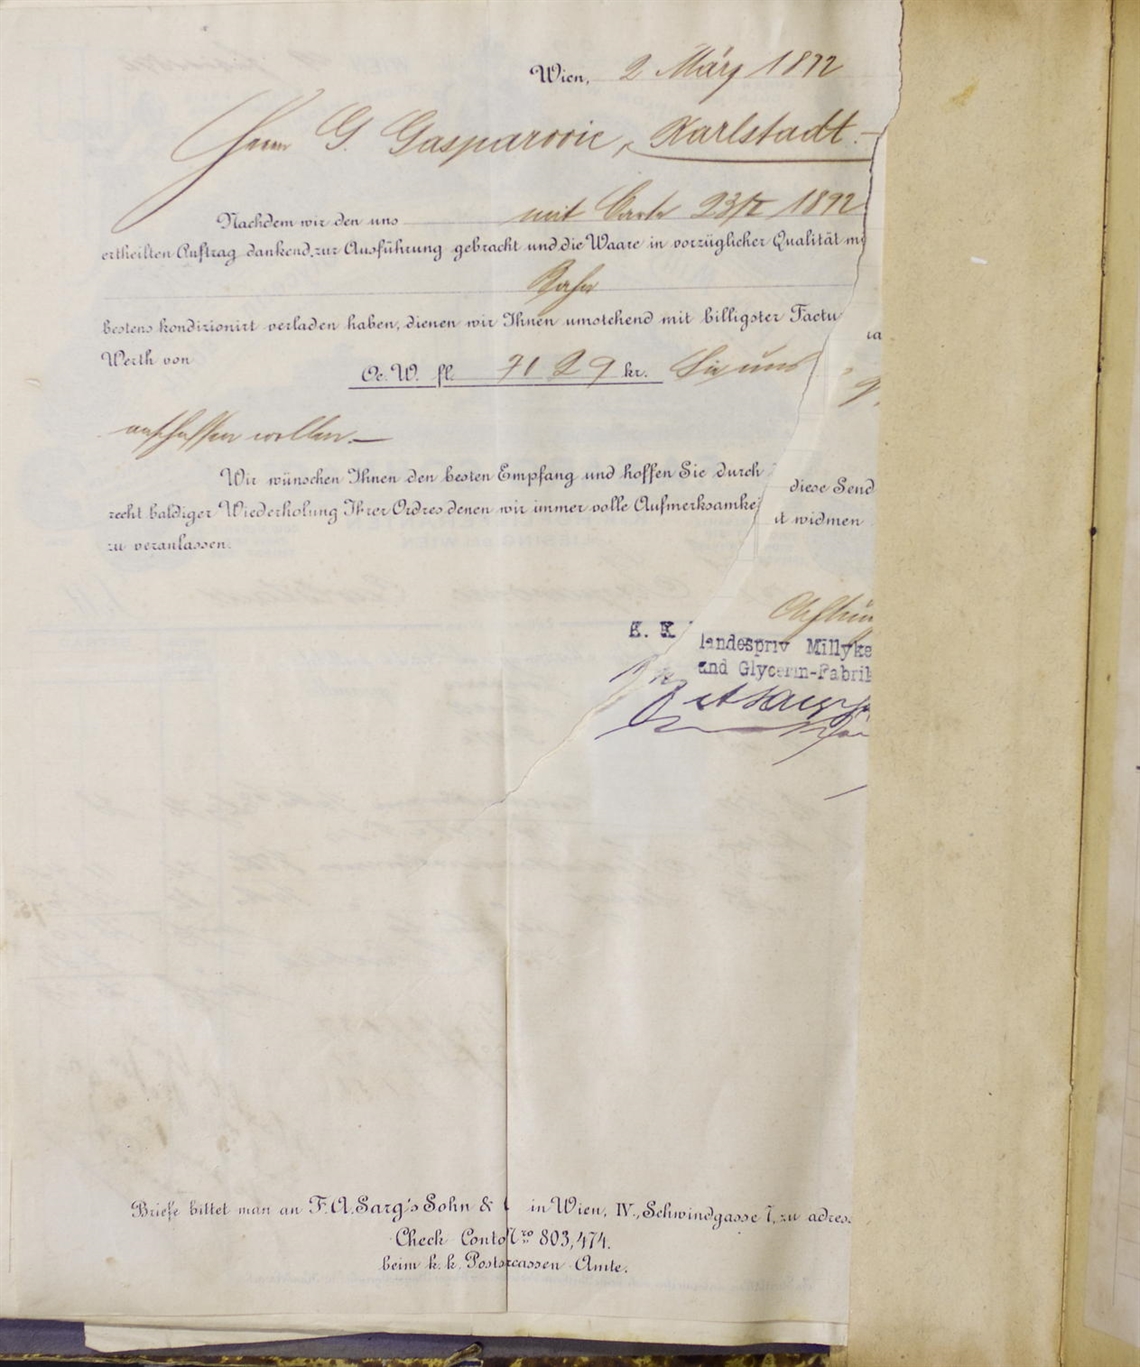 Wien, 2 März 1892
Herrn G. Gasparovic, Karlstadt.—
Nachdem wir den uns mit Carte 23/II 1892
ertheilten Auftrag dankend zur Ausführung gebracht und die Waare in vorzüglicher Qualität
Bahn
bestens kondizionirt verladen haben, dienen wir Ihnen umstehend mit billigster Factu
Werth von
Oe. W. fl. 71 29 kr. Sie uns
anschaffen wollen.—
Wir wünschen Ihnen den besten Empfang und hoffen Sie durch diese Send
recht baldiger Wiederholung Ihrer Ordres denen wir immer volle Aufmerksamkeit widmen
zu veranlassen.
K. K. landespriv Millyke
und Glycerin-Fabrik
Briefe bittet man an F. A. Sarg's Sohn & in Wien, IV., Schwindgasse 7, zu adres.
Check Conto Nro 803,474.
beim k. k. Postsparcassen Amte.